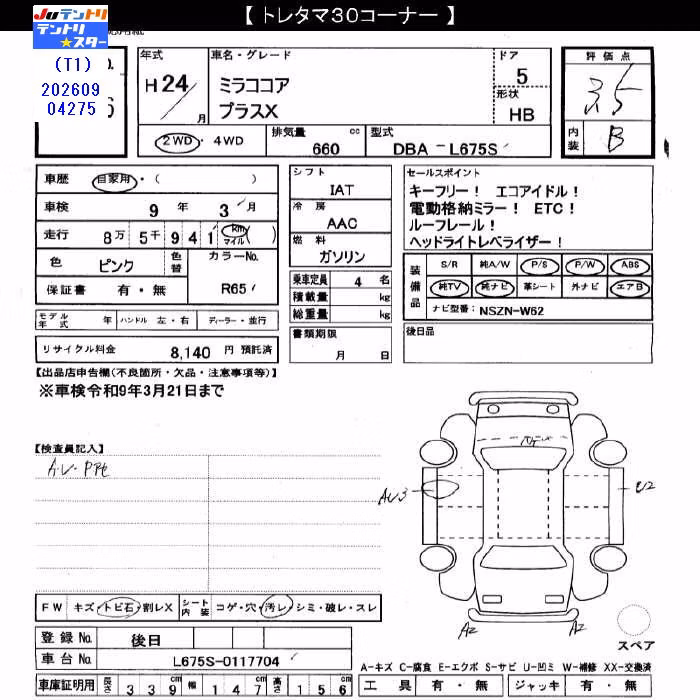 【 トレタマ３０コーナー 】
Juテントリ
テントリ
★スター
(T1)
202609
04275
年式 H 24 / 月
車名・グレード ミラココア プラスX
ドア 5
形状 HB
評価点 3.5
内装 B
2WD・4WD
排気量 660 cc
型式 DBA - L675S
車歴 自家用・( )
車検 9 年 3 月
走行 8万 5千 9 4 1 km マイル ( )
色 ピンク 色替 カラーNo. R65
保証書 有・無
モデル年式 年 ハンドル 左・右 ディーラー・並行
リサイクル料金 8,140 円 預託済
シフト IAT
冷房 AAC
燃料 ガソリン
乗車定員 4 名
積載量 kg
総重量 kg
書類期限 月 日
セールスポイント
キーフリー！ エコアイドル！
電動格納ミラー！ ETC！
ルーフレール！
ヘッドライトレベライザー！
装備品 S/R 純A/W P/S P/W ABS
純TV 純ナビ 革シート 外ナビ エアB
ナビ型番: NSZN-W62
後日品
【出品店申告欄(不良箇所・欠品・注意事項等)】
※車検令和9年3月21日まで
【検査員記入】
FW キズ・トビ石・割レX シート内装 コゲ・穴・汚レ・シミ・破レ・スレ
登録No. 後日
車台No. L675S-0117704
車庫証明用 長さ 3 3 9 cm 幅 1 4 7 cm 高さ 1 5 6 cm
AU3
U2
A2
A2
スペア
A-キズ C-腐食 E-エクボ S-サビ U-凹ミ W-補修 XX-交換済
工具 有・無 ジャッキ 有・無